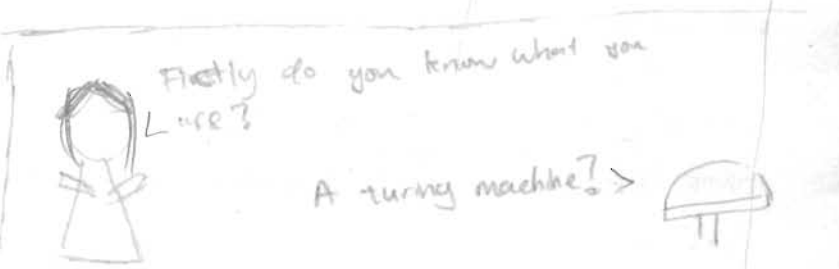 Firstly do you know what you
are?
A turing machine?!